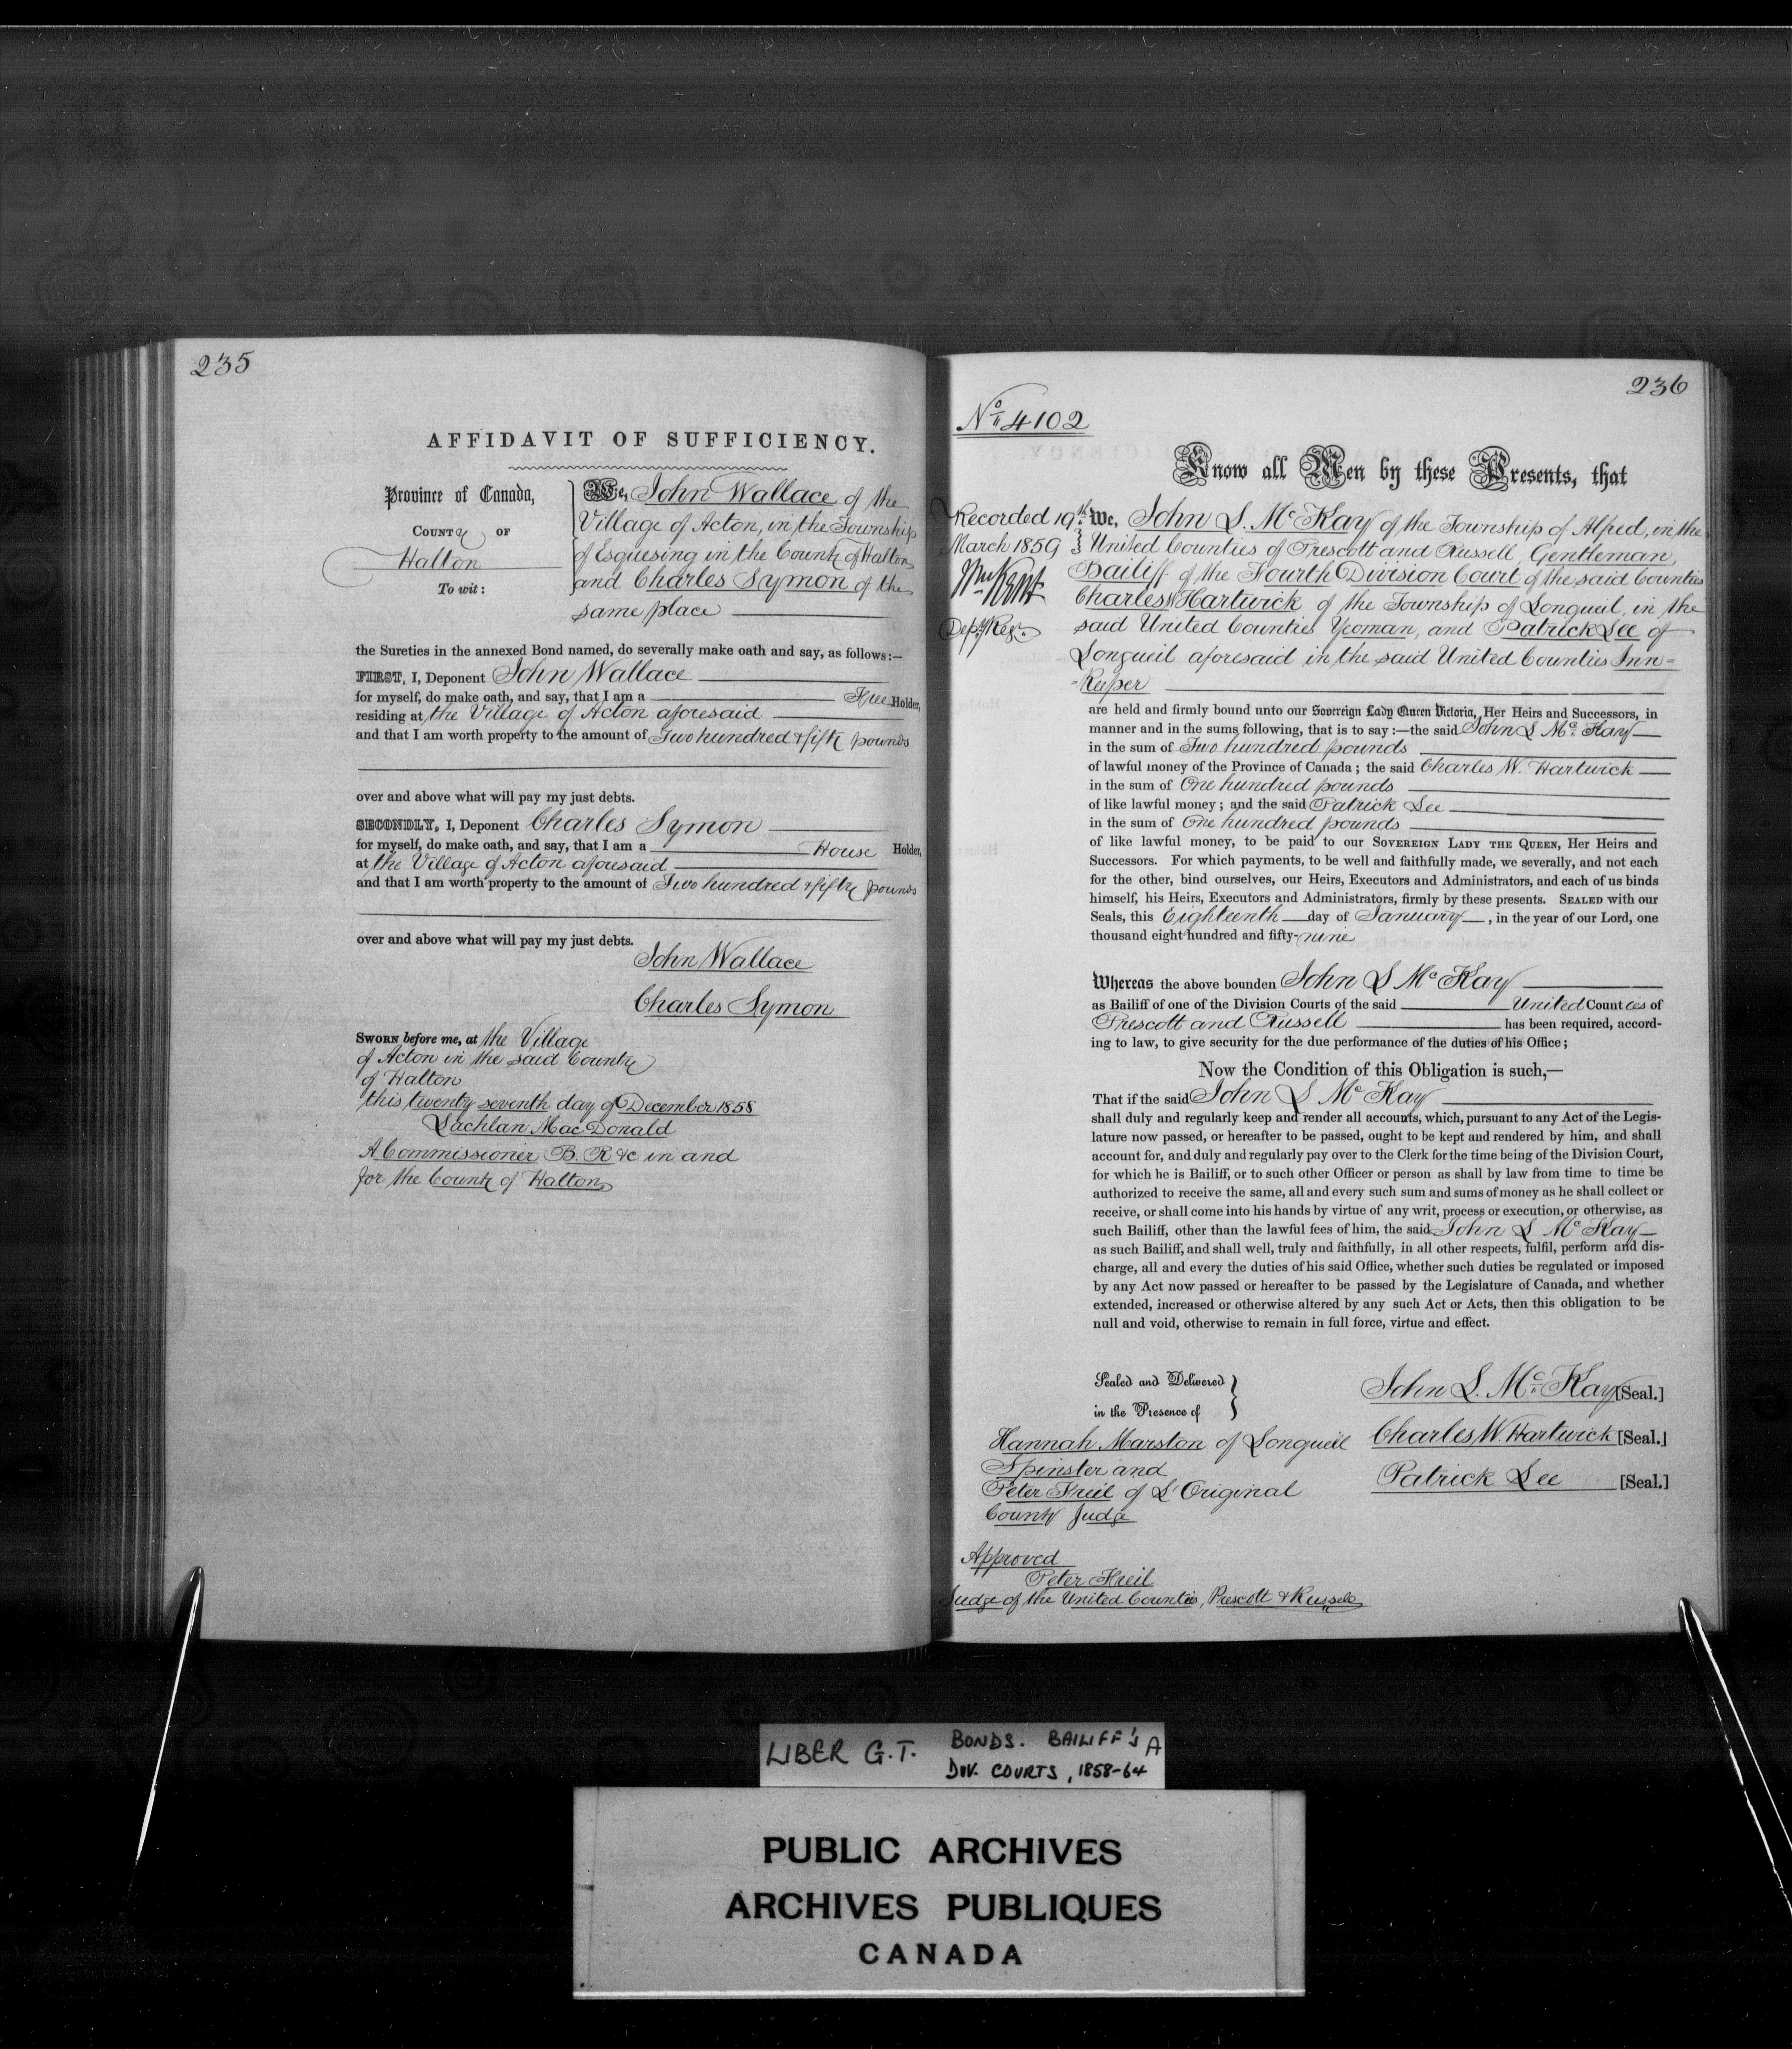 235
AFFIDAVIT OF SUFFICIENCY.
Province of Canada,
COUNTY OF
Halton
To wit:
We, John Wallace of the
Village of Acton, in the Township
of Esquesing in the County of Halton
and Charles Symon of the
same place
the Sureties in the annexed Bond named, do severally make oath and say, as follows:—
FIRST, I, Deponent John Wallace
for myself, do make oath, and say, that I am a Free Holder,
residing at the Village of Acton aforesaid
and that I am worth property to the amount of Two hundred & fifty pounds
over and above what will pay my just debts.
SECONDLY, I, Deponent Charles Symon
for myself, do make oath, and say, that I am a House Holder,
at the Village of Acton aforesaid
and that I am worth property to the amount of Two hundred & fifty pounds
over and above what will pay my just debts.
John Wallace
Charles Symon
SWORN before me, at the Village
of Acton in the said County
of Halton
this twenty seventh day of December 1858
Lachlan MacDonald
A Commissioner B. R &c in and
for the County of Halton
236
No 4102
Know all Men by these Presents, that
Recorded 19th
March 1859
Wm Kent
Depy Regr.
We, John S. McKay of the Township of Alfred, in the
United Counties of Prescott and Russell, Gentleman,
Bailiff of the Fourth Division Court of the said Counties
Charles W Hartwick of the Township of Longueil, in the
said United Counties Yeoman, and Patrick Lee of
Longueil aforesaid in the said United Counties Inn=
-Keeper
are held and firmly bound unto our Sovereign Lady Queen Victoria, Her Heirs and Successors, in
manner and in the sums following, that is to say:—the said John S McKay
in the sum of Two hundred pounds
of lawful money of the Province of Canada; the said Charles W. Hartwick
in the sum of One hundred pounds
of like lawful money; and the said Patrick Lee
in the sum of One hundred pounds
of like lawful money, to be paid to our SOVEREIGN LADY THE QUEEN, Her Heirs and
Successors. For which payments, to be well and faithfully made, we severally, and not each
for the other, bind ourselves, our Heirs, Executors and Administrators, and each of us binds
himself, his Heirs, Executors and Administrators, firmly by these presents. SEALED with our
Seals, this Eighteenth day of January, in the year of our Lord, one
thousand eight hundred and fifty-nine
Whereas the above bounden John S McKay
as Bailiff of one of the Division Courts of the said United Counties of
Prescott and Russell has been required, accord-
ing to law, to give security for the due performance of the duties of his Office;
Now the Condition of this Obligation is such,—
That if the said John S McKay
shall duly and regularly keep and render all accounts, which, pursuant to any Act of the Legis-
lature now passed, or hereafter to be passed, ought to be kept and rendered by him, and shall
account for, and duly and regularly pay over to the Clerk for the time being of the Division Court,
for which he is Bailiff, or to such other Officer or person as shall by law from time to time be
authorized to receive the same, all and every such sum and sums of money as he shall collect or
receive, or shall come into his hands by virtue of any writ, process or execution, or otherwise, as
such Bailiff, other than the lawful fees of him, the said John S McKay
as such Bailiff, and shall well, truly and faithfully, in all other respects, fulfil, perform and dis-
charge, all and every the duties of his said Office, whether such duties be regulated or imposed
by any Act now passed or hereafter to be passed by the Legislature of Canada, and whether
extended, increased or otherwise altered by any such Act or Acts, then this obligation to be
null and void, otherwise to remain in full force, virtue and effect.
Sealed and Delivered
in the Presence of
Hannah Marston of Longueil
Spinster and
Peter Freil of L'Original
County Judge
John S. McKay [Seal.]
Charles W. Hartwick [Seal.]
Patrick Lee [Seal.]
Approved
Peter Freil
Judge of the United Counties, Prescott & Russell
LIBER G.T. BONDS. BAILIFF'S A
DIV. COURTS, 1858-64
PUBLIC ARCHIVES
ARCHIVES PUBLIQUES
CANADA